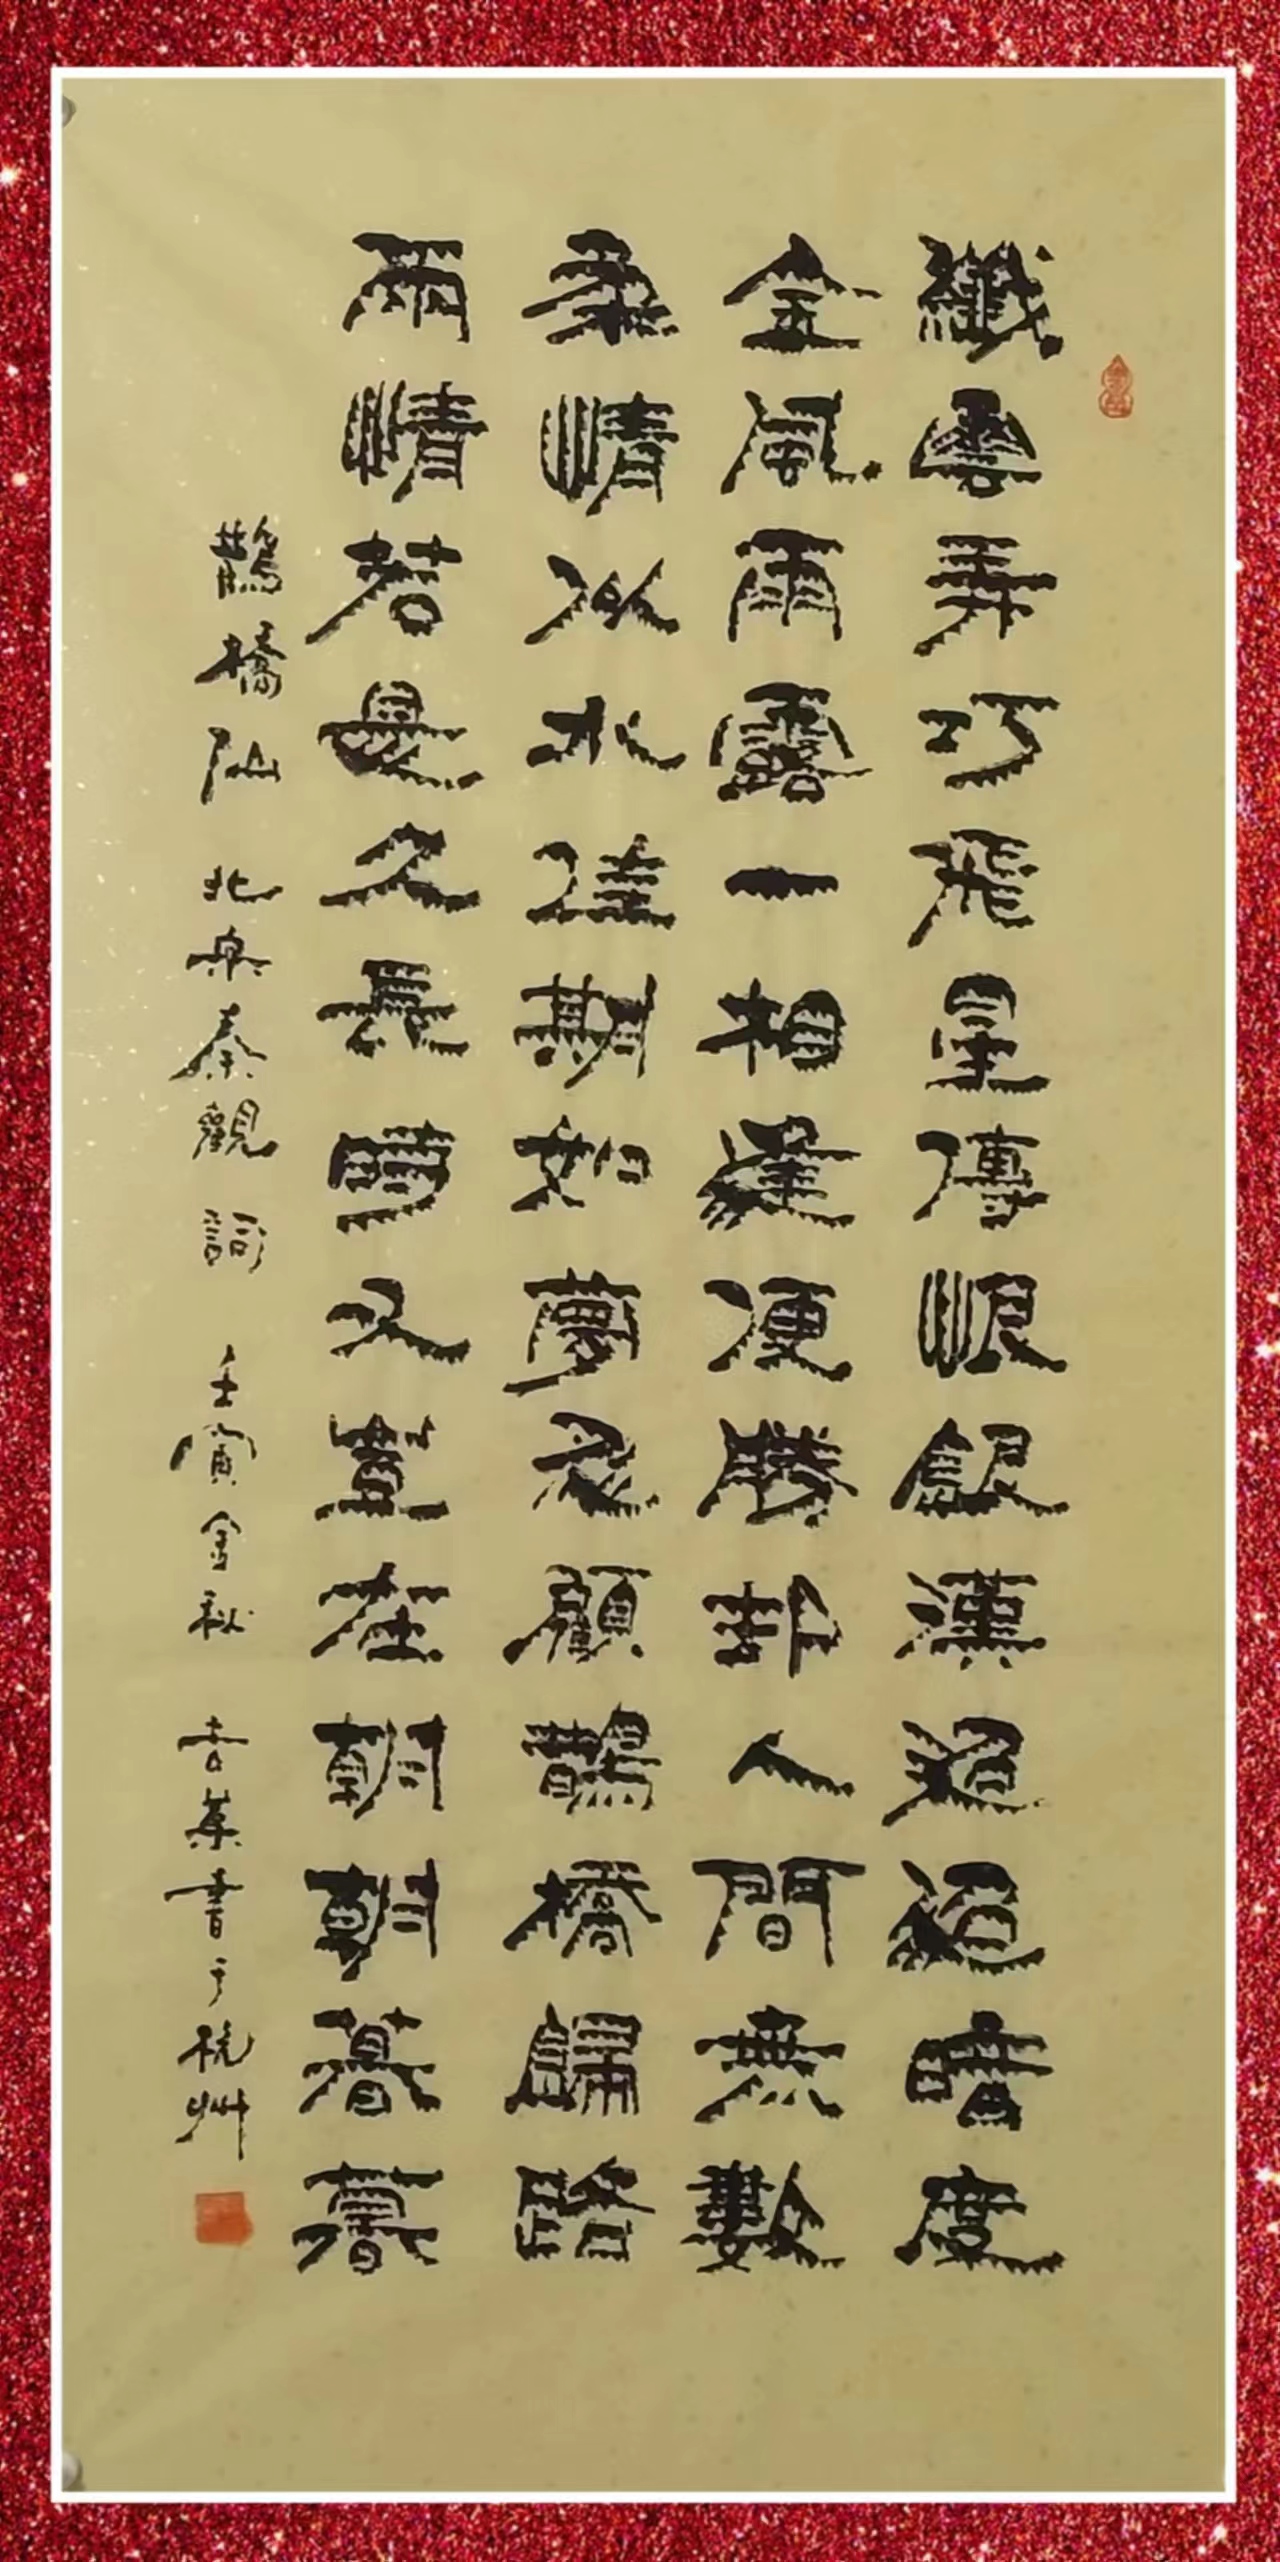 纖雲弄巧飛星傳恨銀漢迢迢暗度
金風雨露一相逢便勝卻人間無數
柔情似水佳期如夢忍顧鵲橋歸路
兩情若是久長時又豈在朝朝暮暮
鵲橋仙 北宋秦觀詞 壬寅金秋 吉書于杭州